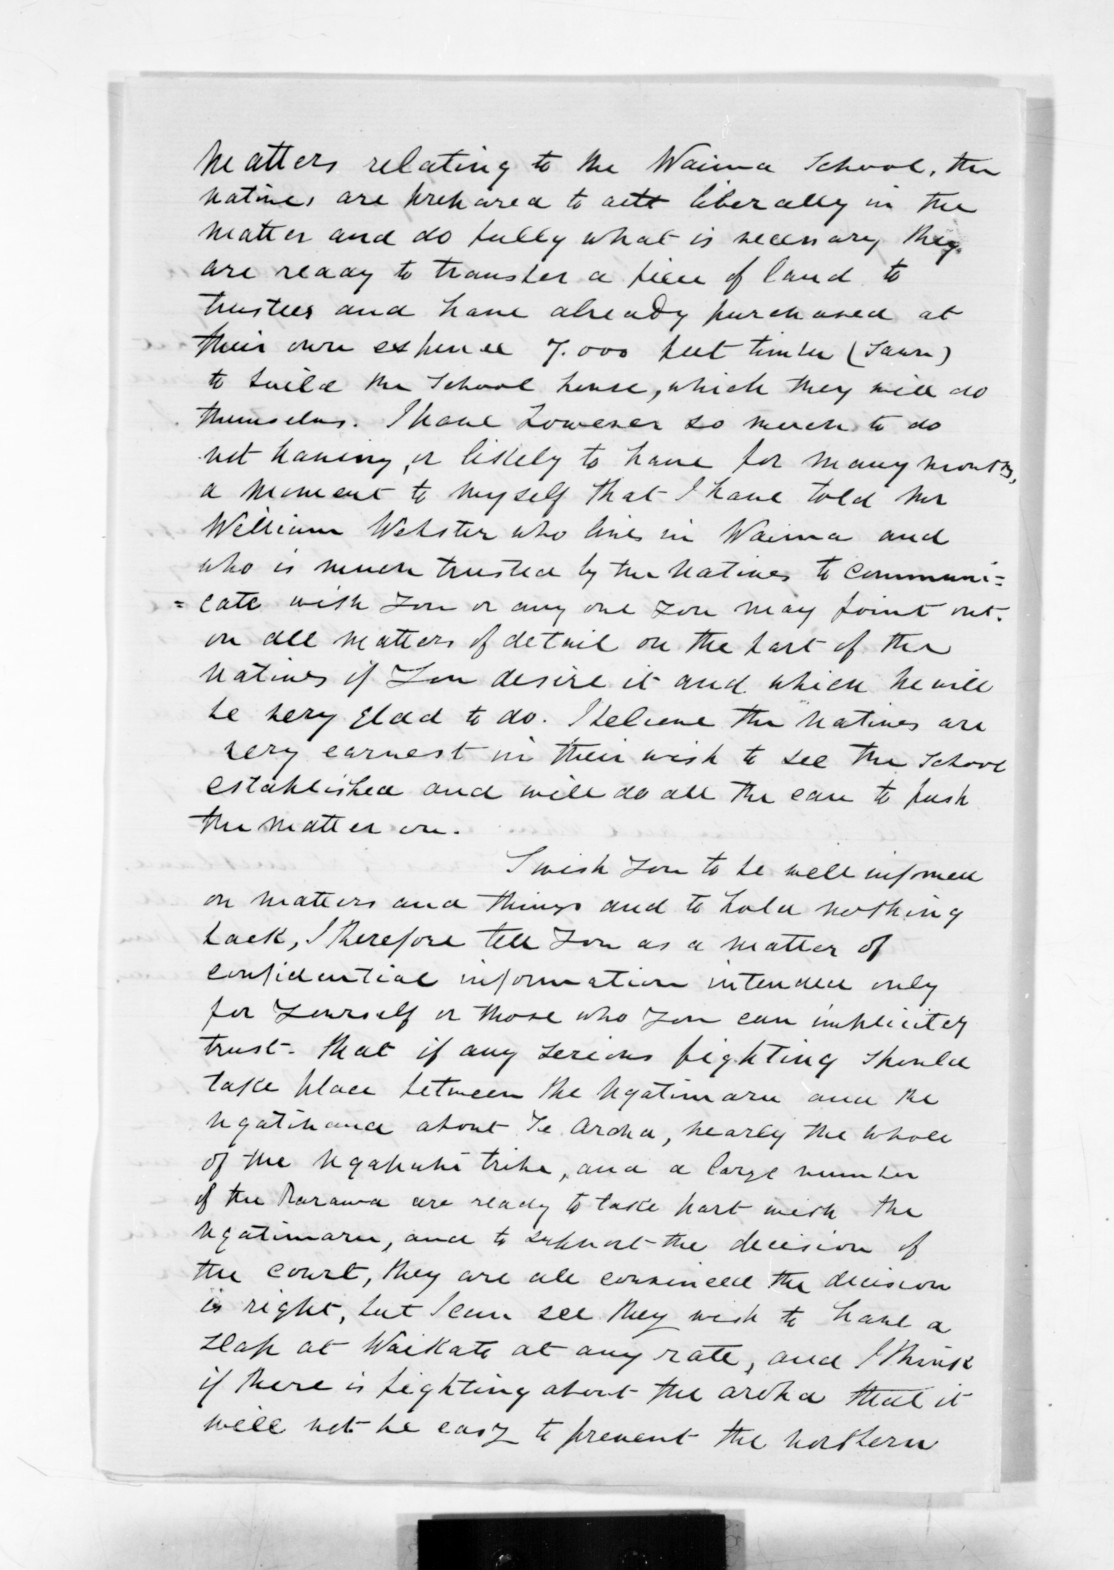 Matters relating to the Waima School, the
natives are prepared to actt liberally in the
matter and do fully what is necessary they
are ready to transfer a piece of land to
trustees and have already purchased at
their own expence 7.000 feet timber (Sawn)
to build the School house, which they will do
themselves. I have however so much to do
not having, or likely to have for many months,
a moment to myself that I have told Mr
William Webster who lives in Waima and
who is much trusted by the Natives to communi=
=cate with You or any one You may point out.
on all matters of detail on the part of the
Natives if You desire it and which he will
be very glad to do. I believe the Natives are
very earnest in their wish to see the School
established and will do all the can to push
the matter on.
I wish You to be well informed
on matters and things and to hold nothing
back, I therefore tell You as a matter of
confidential information intended only
for Yourself or those who You can implicitey
trust. that if any serious fighting should
take place between the Ngatimaru and the
Ngatihaua about Te Aroha, nearly the whole
of the Ngapuhi tribe, and a large number
of the Rarawa are ready to take part with the
Ngatimaru, and to support the decision of
the court, they are all convinced the decision
is right, but I can see they wish to have a
slap at Waikato at any rate, and I think
if there is fighting about the aroha that it
will not be easy to prevent the northern